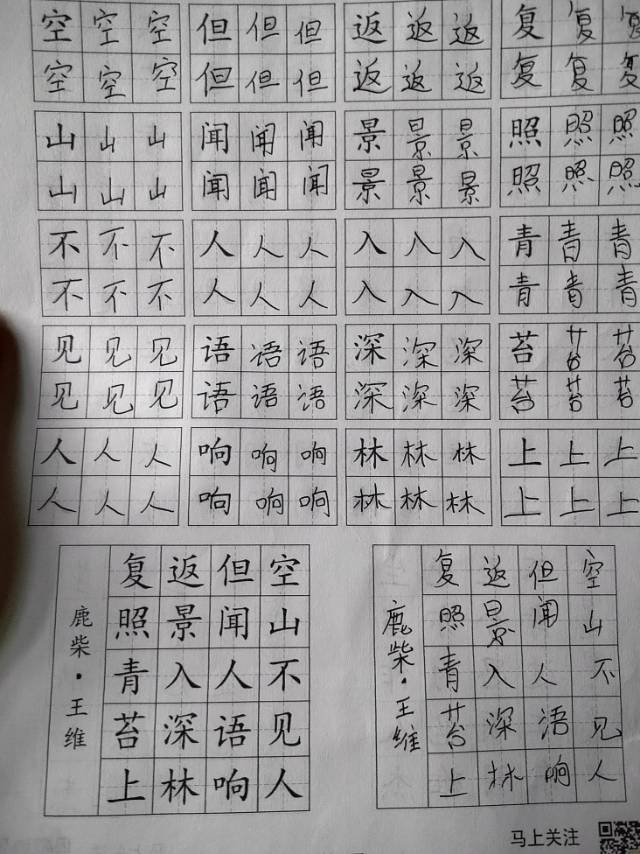 空空空 但但但 返返返 复复复
空空空 但但但 返返返 复复复
山山山 闻闻闻 景景景 照照照
山山山 闻闻闻 景景景 照照照
不不不 人人人 入入入 青青青
不不不 人人人 入入入 青青青
见见见 语语语 深深深 苔苔苔
见见见 语语语 深深深 苔苔苔
人人人 响响响 林林林 上上上
人人人 响响响 林林林 上上上
空山不见人
但闻人语响
返景入深林
复照青苔上
鹿柴·王维
空山不见人
但闻人语响
返景入深林
复照青苔上
鹿柴·王维
马上关注